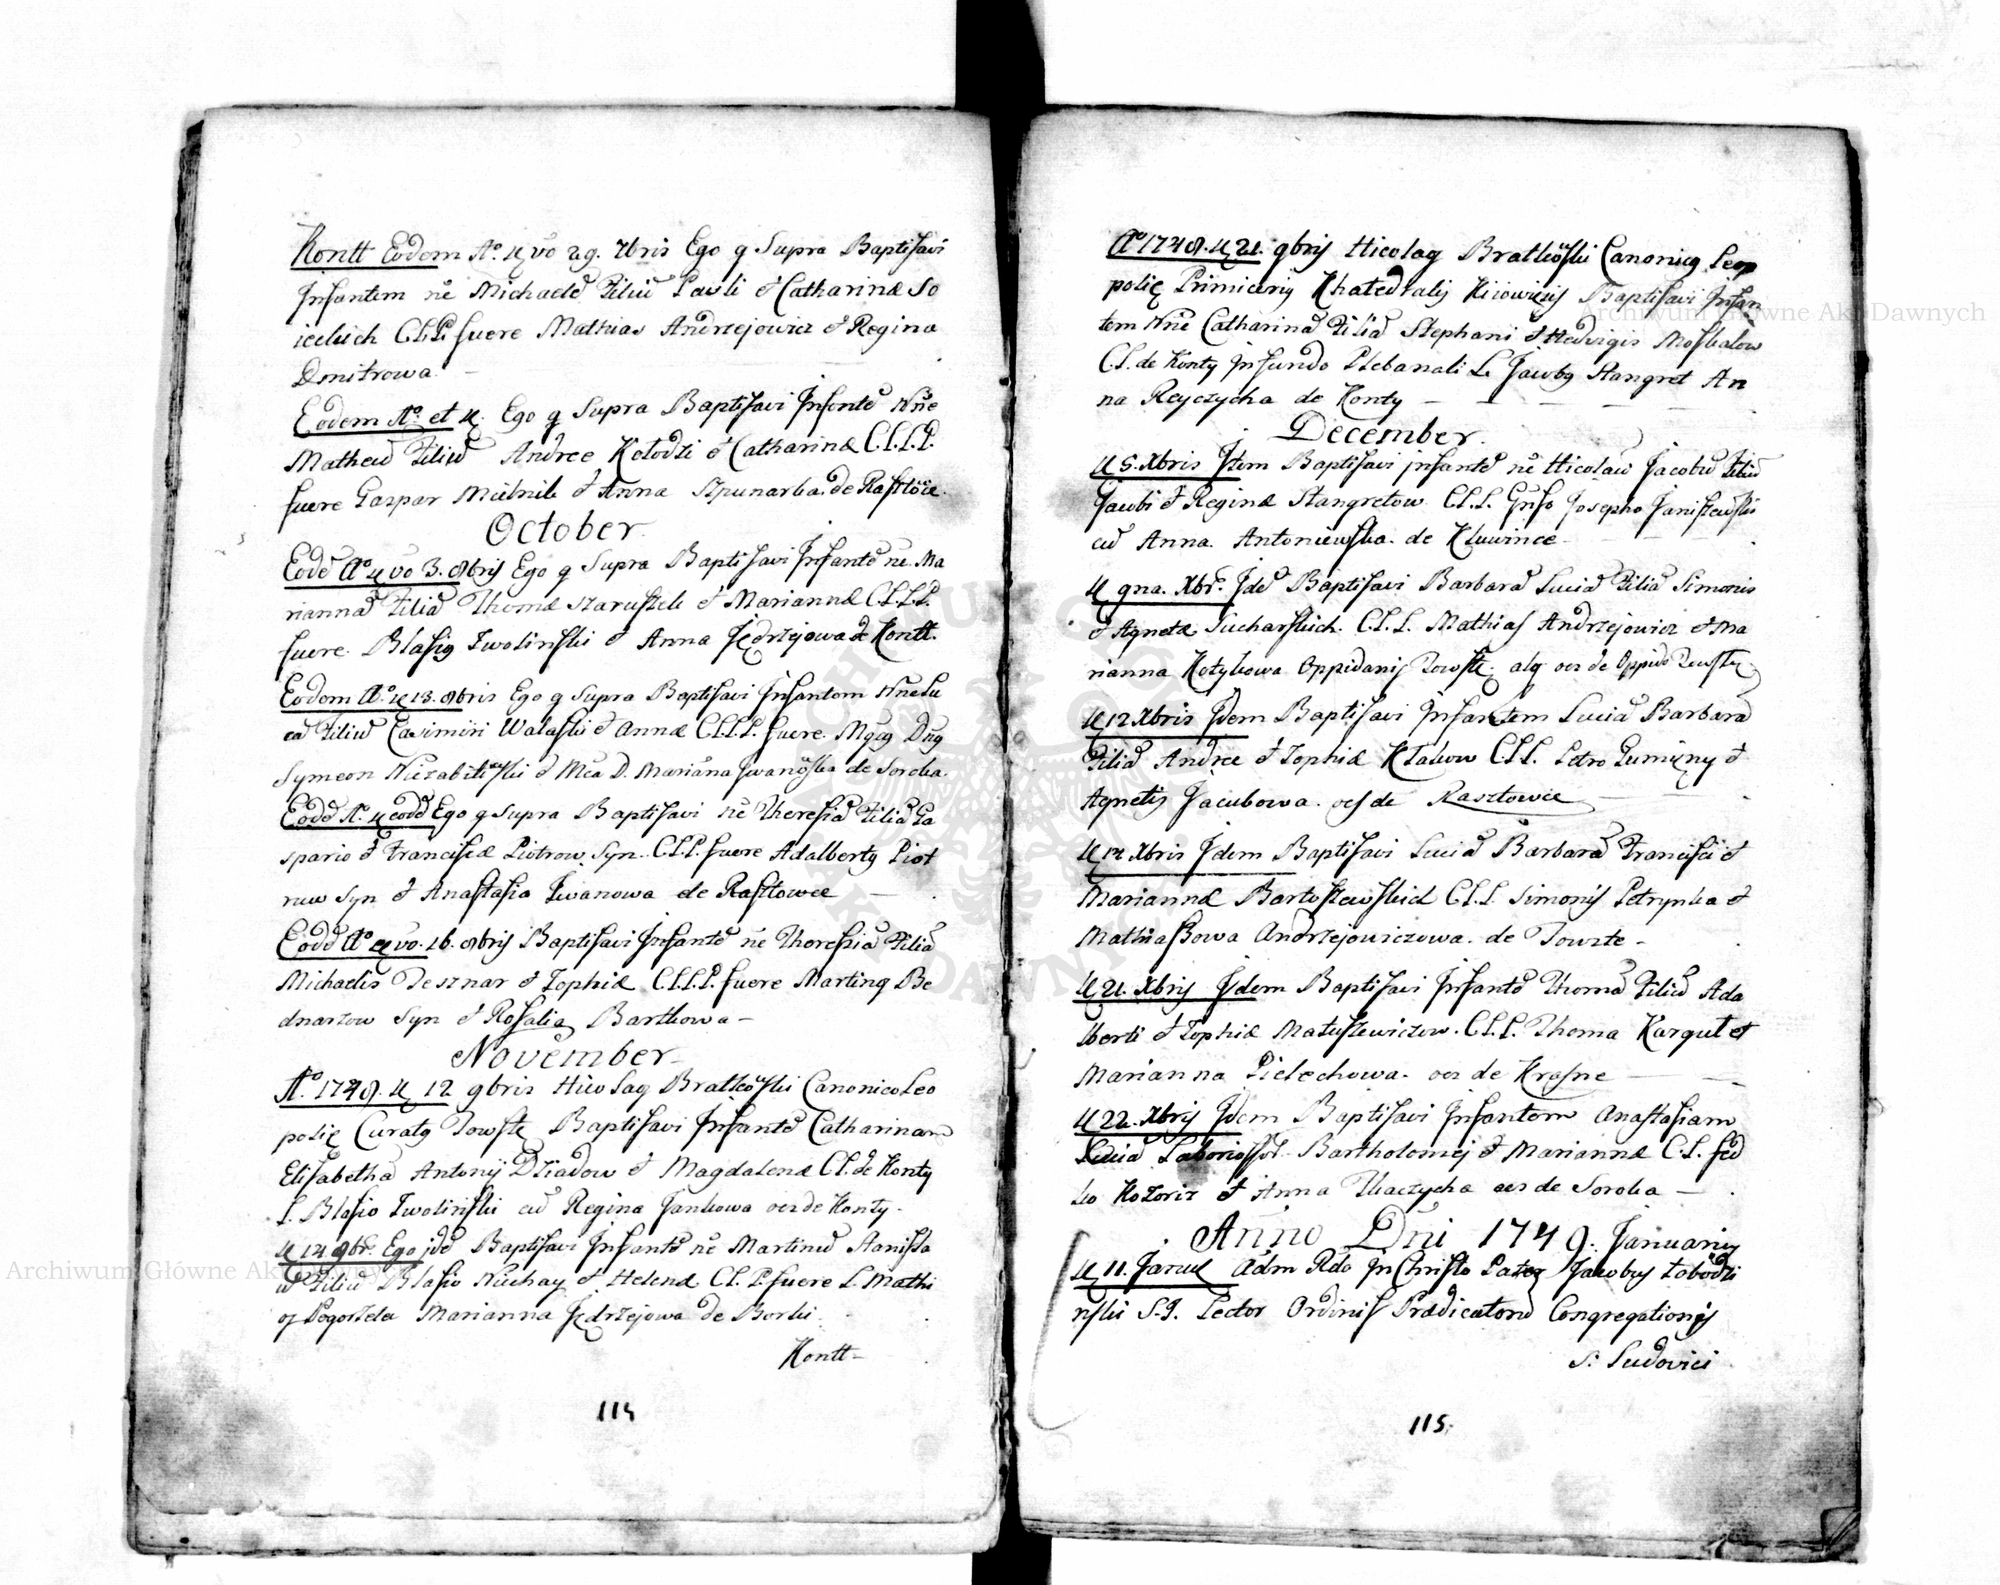 Kontt Eodem Ao. d vo 29. 7bris Ego q Supra Baptisavi
Infantem nē Michaelē Filiū Pauli et Catharinæ So
ieckich C.L.P. fuere Mathias Andrzejowicz et Regina
Dmitrowa
Eodem Ao. et d. Ego q Supra Baptisavi Infantē Nne
Matheū Filiū Andree Kołodzi et Catharinæ C.L.L.P.
fuere Gaspar Mielnik et Anna Szpunarka de
October
Eodē Ao d vo 3. 8bris Ego q Supra Baptisavi Infantē nē Ma
riannā Filiā Thomæ et Mariannæ C.L.L.P.
fuere Blasiq Zwolinski et Anna Jędrzejowa de Kontt.
Eodem Ao. d 13. 8bris Ego q Supra Baptisavi Infantem Nne Lu
cā Filiū Casimiri Walaski et Annæ C.L.L.P. fuere Mgcq Dnq
Symeon et Mca D. Marianna Iwanoska de Soroka
Eodē Ao. d eodē Ego q Supra Baptisavi nē Theresiā Filiā Ga
spario et Franciscæ Piotrow Syn. C.L.P. fuere Adalbertq Piot
row Syn et Anastasia Iwanowa de Rasztowce
Eodē Ao d vo. 16. 8bris Baptisavi Infantē nē Theresiā Filiā
Michaelis Tesznar et Zophiæ C.L.L.P. fuere Martinq Be
dnarzow Syn et Rosalia Bartkowa
November
Ao. 1748. d 12 9bris Nicolaq Bratkoski Canonico Leo
polię Curatq Towstę Baptisavi Infantē Catharinam
Elisabethā Antonij Dziadow et Magdalenæ C.L. de Konty
L. Blasio Zwolinski cū Regina Jankowa oes de Konty
d 14 9br. Ego idē Baptisavi Infantē nē Martinū Stanisla
ū Filiū Blasio Niechay et Helenæ C.L. P. fuere L. Mathi
q Pogorzela Marianna Jędrzejowa de Borki
Kontt
114
Ao 1748. d 21. 9bris Nicolaq Bratkoski Canonicq Leop
polię Primicerij Khatedralis Kijowięsis Baptisavi Infan
tem Nne Catharinā Filiā Stephani et Hedvigis Moskalow
C.L. de Konty In fundo Plebanali L. Jacobq Stangret An
na Reyczycha de Konty
December
d 5. Xbris Idem Baptisavi infantē nē Nicolaū Jacobū Filiū
Jacobi et Reginæ Stangretow C.L.L. Gnso Josepho Janiszewski
cū Anna Antoniewska de Kluwince
d 9na. Xbr. Idē Baptisavi Barbarā Luciā Filiā Simonis
et Agnetæ Sucharskich C.L.L. Mathias Andrzejowicz et Ma
rianna Kotykowa Oppidanis Towstę. alq oes de Oppido Towstę
d 12 Xbris Idem Baptisavi Infantem Luciā Barbarā
Filiā Andree et Zophiæ Ktakow C.L.L. Petro Gumięny et
Agnetis Jacubowa oes de Rasztowce
d 14 Xbris Idem Baptisavi Luciā Barbarā Francisci et
Mariannæ Bartoszewskich C.L.L. Simonis Petrynka et
Mathiaszowa Andrzejowiczowa de Towste
d 21. Xbris Idem Baptisavi Infantē Thomā Filiū Ada
lberti et Zophiæ Matuszewiczow. C.L.L. Thoma Kargul et
Marianna Pielechowa oes de Krasne
d 22. Xbris Idem Baptisavi Infantem Anastasiam
Filiā Bartholomęj et Mariannæ C.L. Fed
ko Kozoriz et Anna Tkaczycha oes de Soroka
Anno Dni 1749. Januarij
d 11. Januæ Adm Rdo In Christo Pater Jacobus Łobodzi
nski S.J. Lector Ordinis Prædicatorū Congregationis
S. Ludovici
115.
Archiwum Główne Akt Dawnych
Archiwum Główne Akt Dawnych